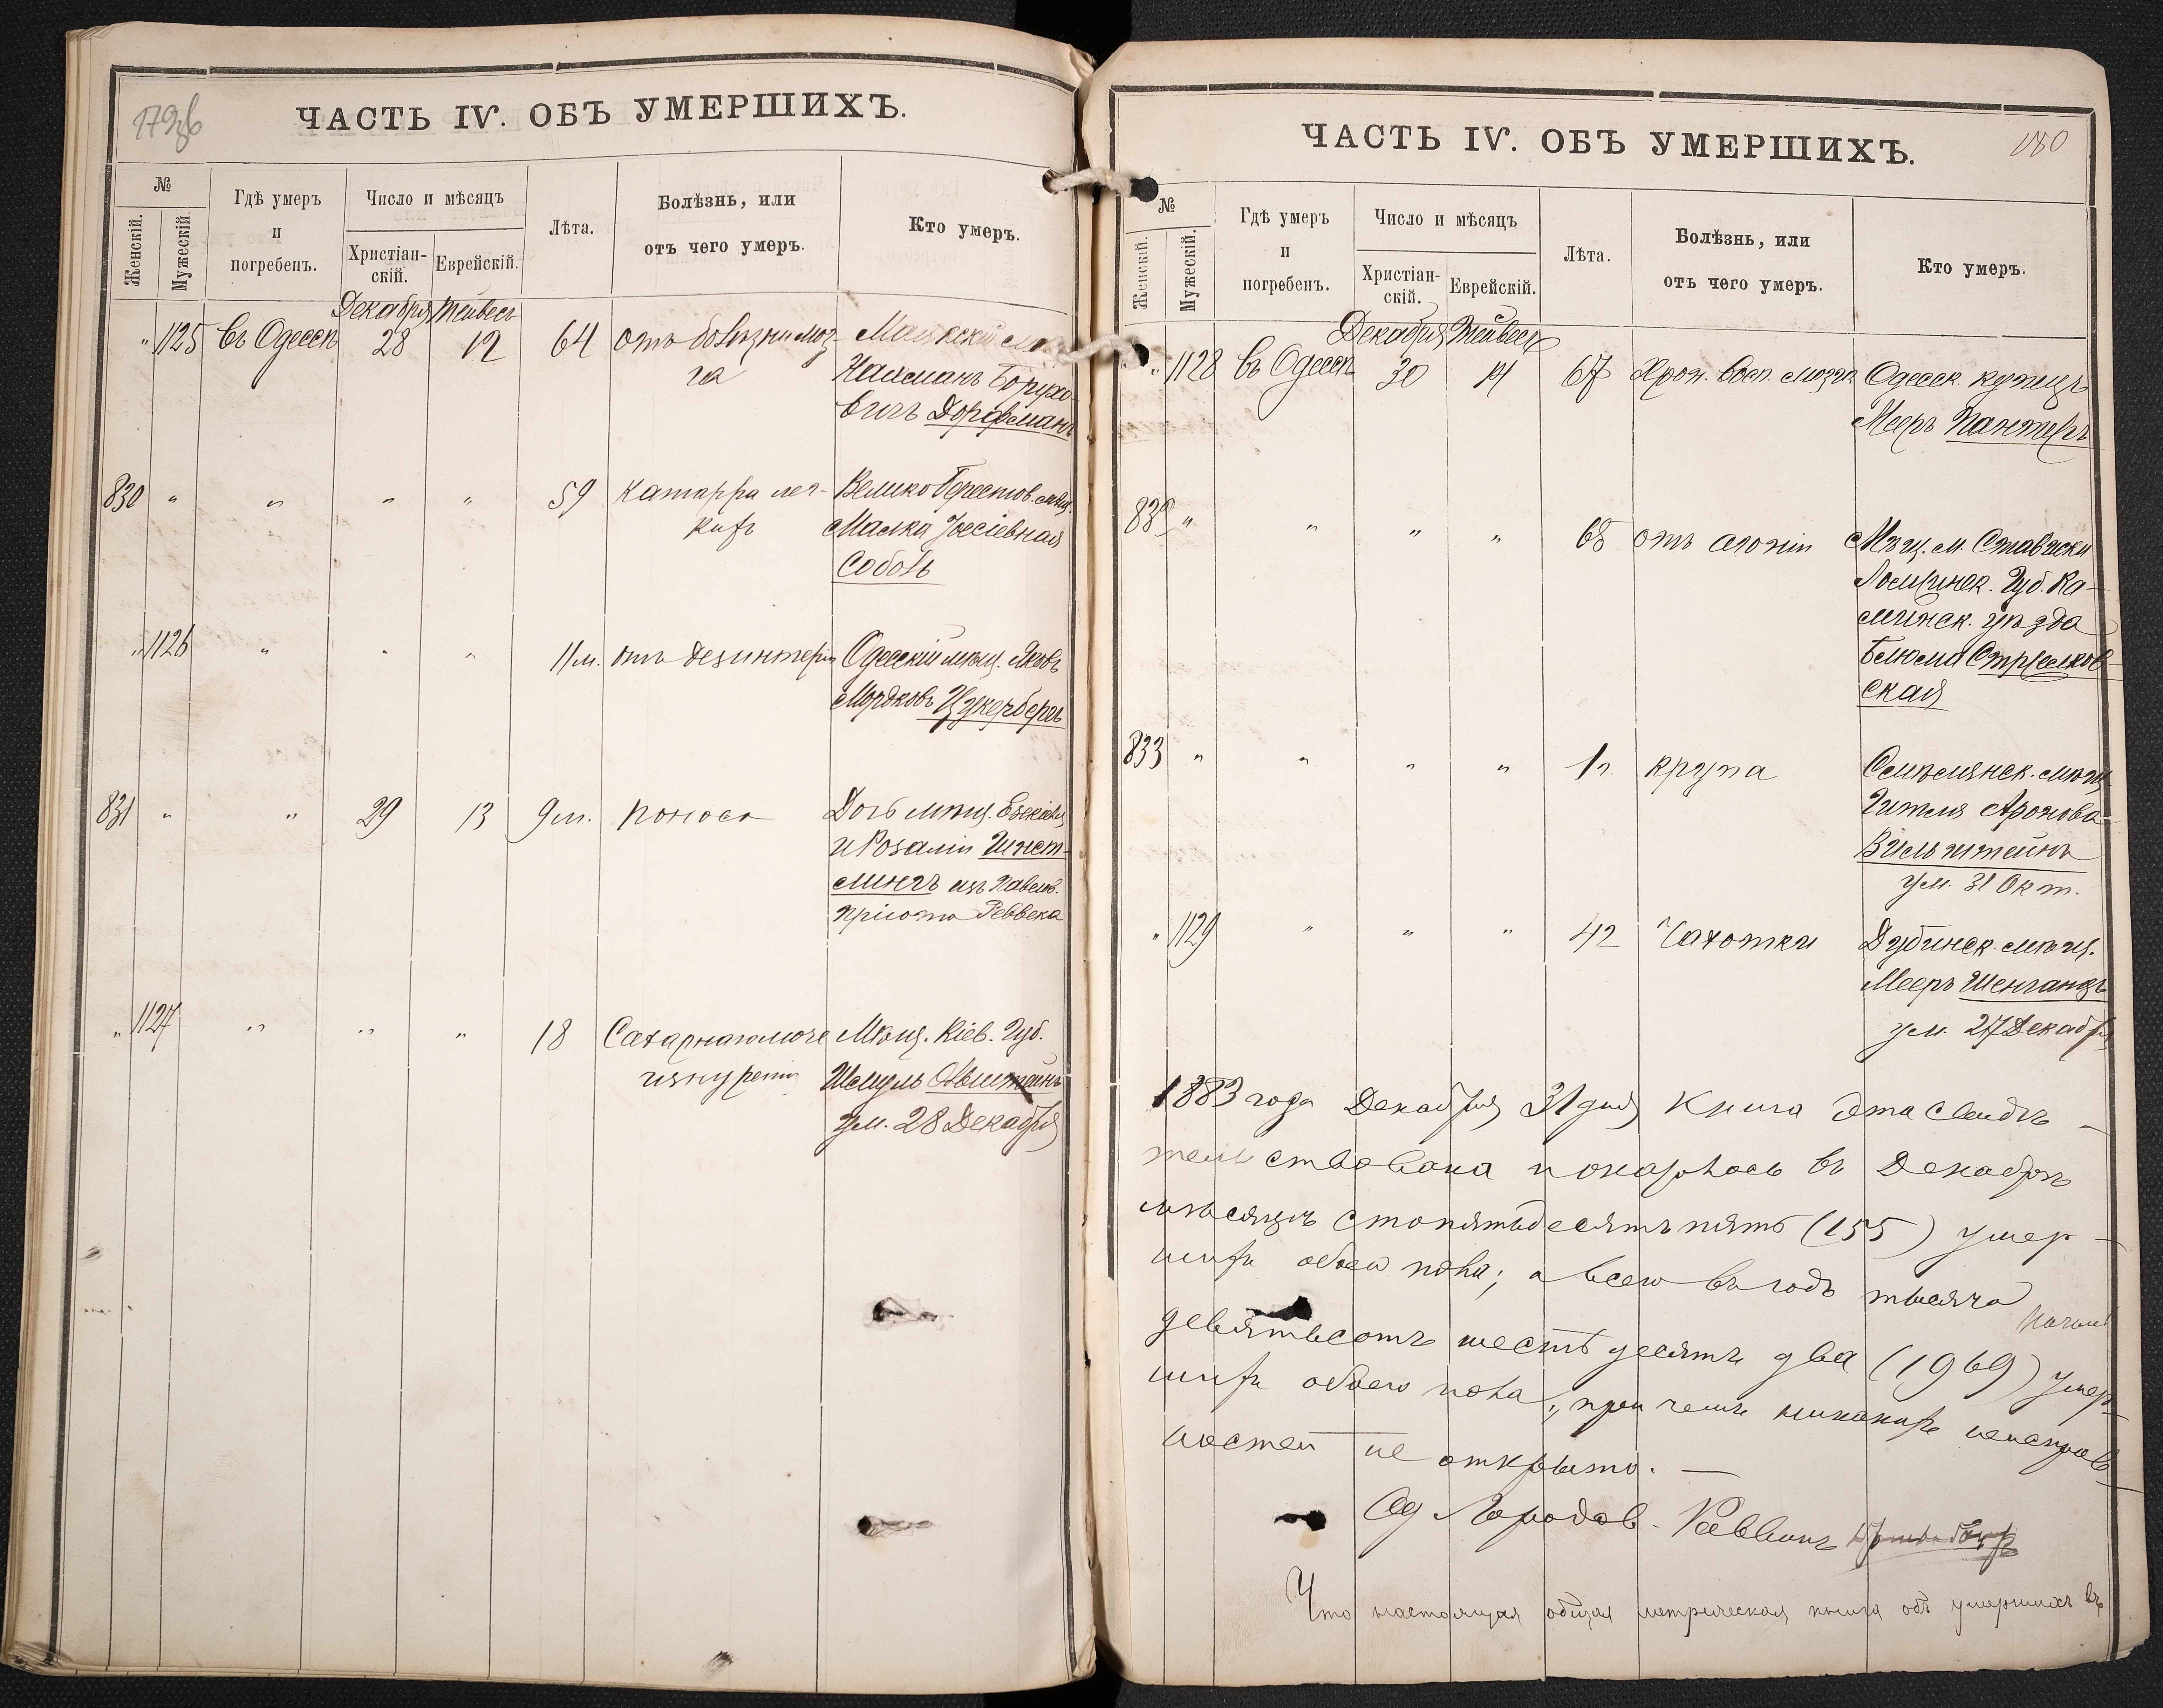 179об
ЧАСТЬ IV. ОБЪ УМЕРШИХЪ.
№
Женскій.
Мужескій
Гдѣ умеръ
и
погребенъ.
Число и мѣсяцъ
Христіан-
скій.
Еврейскій.
Лѣта.
Болѣзнь, или
отъ чего умеръ.
Кто умеръ.
Декабря Тейвесъ
" 1125 въ Одессѣ 28 12 64 отъ болѣзни моз-
га
Маякскій
Нахманъ Борухо-
вичъ Дорфманъ
830 " " " " 59 катарра лег-
кихъ
Великоберестов. мѣщ.
Малка Іосіевная
Соболь
" 1126 " " " 11 м. отъ дезинтеріи
Одесскій мѣщ. Яковъ
Мордковъ Цукербергъ
831 " " 29 13 9 м. поноса
Дочь мѣщ. Езекіиля
и Розаліи Шнет-
лингъ изъ Павлов.
пріюта Реввека
" 1127 " " " 18 Сахарнагомоче
изнуренія
Мѣщ. Кіев. Губ.
Шмуль
ум. 28 Декабря
180
ЧАСТЬ IV. ОБЪ УМЕРШИХЪ.
№
Женскій.
Мужескій.
Гдѣ умеръ
и
погребенъ.
Число и мѣсяцъ
Христіан-
скій.
Еврейскій.
Лѣта.
Болѣзнь, или
отъ чего умеръ.
Кто умеръ.
Декабря Тейвесъ
" 1128 въ Одессѣ 30 14 67 Хрон. восп. мозга
Одесск. купецъ
Мееръ Пантеръ
832 " " " " 65 отъ агоніи
Мѣщ. м. Стависки
Ломжинск. Губ. Ка-
минск. уѣзда
Блюма Стрелков-
ская
833 " " " " 1 г. крупа
Смѣлянск. мѣщ.
Гитля Аронова
Вильштейнъ
ум. 31 Окт.
" 1129 " " " 42 Чахотки
Дубинск. мѣщ.
Мееръ Шенганцъ
ум. 27 Декабря
1883 года Декабря 31 дня Книга эта свидѣ-
тельствована и оказалось въ Декабрѣ
мѣсяцѣ стопятьдесятъ пять (155) умер-
шихъ обоего пола; а всего въ годъ тысяча
девятьсотъ шестьдесятъ два (1962) умер-
шихъ обоего пола, при чемъ никакихъ неисправ-
ностей не открыто. —
Од Городов. Раввинъ
Что настоящая общая метрическая книга объ умершихъ въ